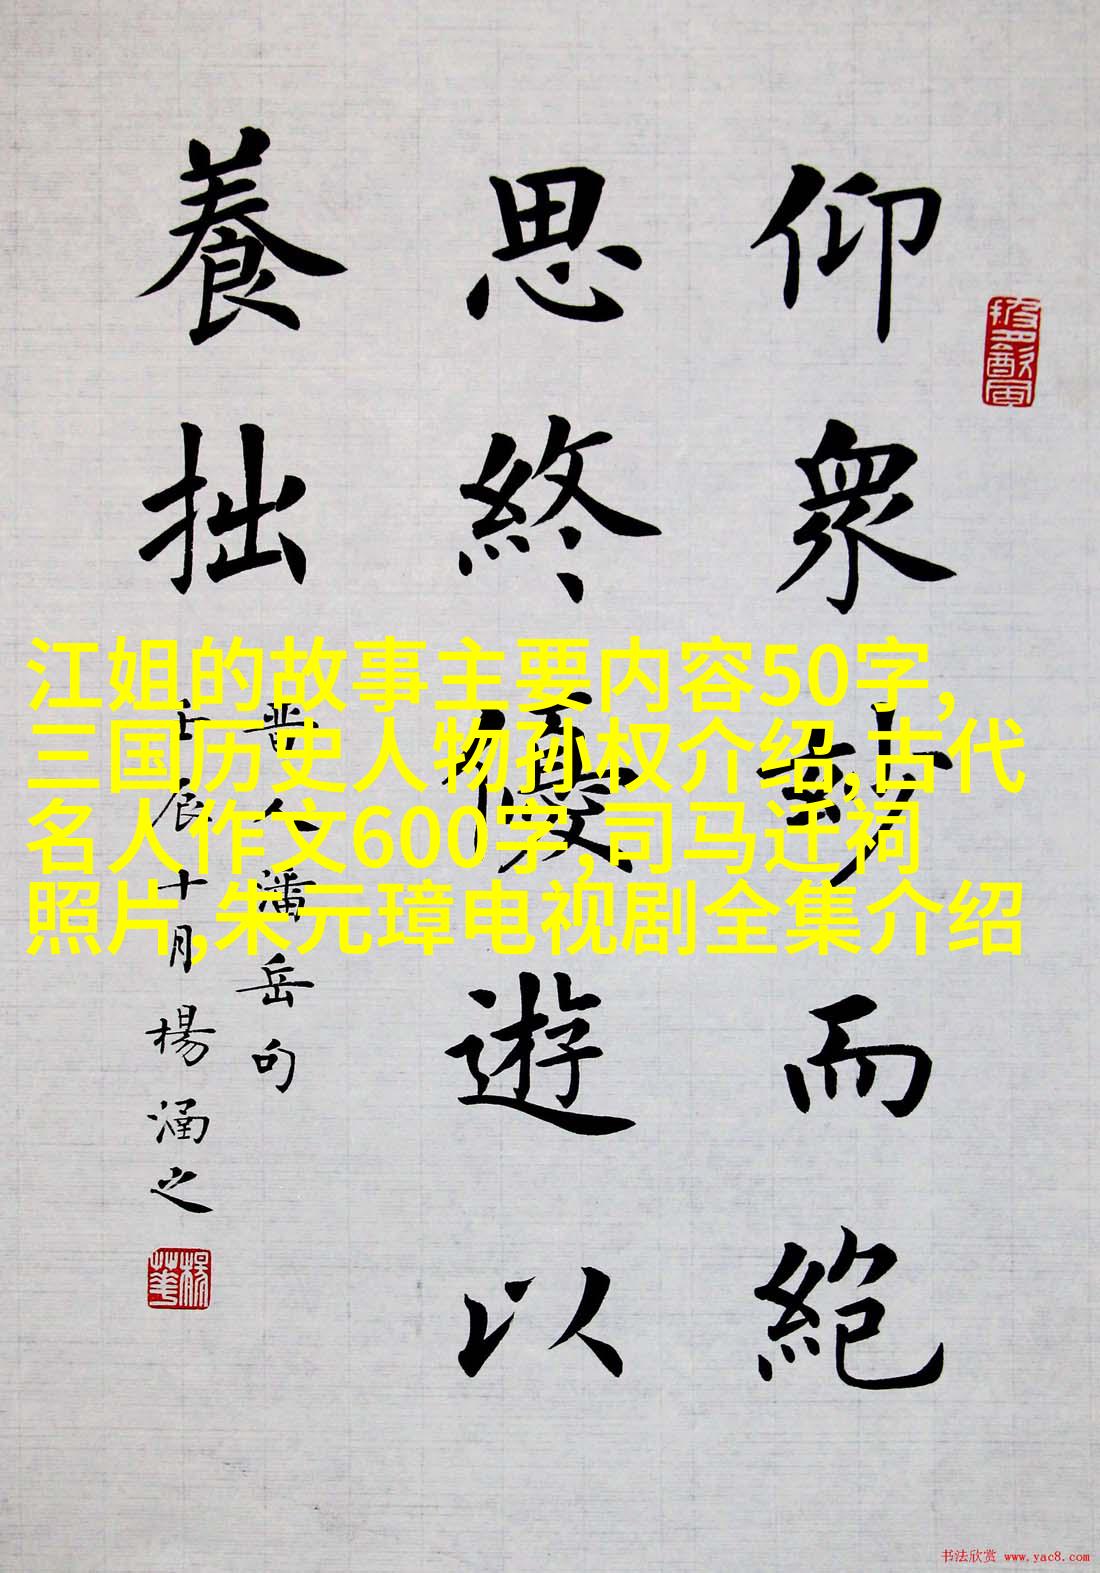 仰眾玅而絕
思終優遊以
養拙
晋人潘岳句
壬辰十月楊涵之
江姐的故事主要内容50字,
三国历史人物孙权介绍,古代
名人作文600字,司马迁祠
照片,朱元璋电视剧全集介绍
书法欣赏 www.yac8.com